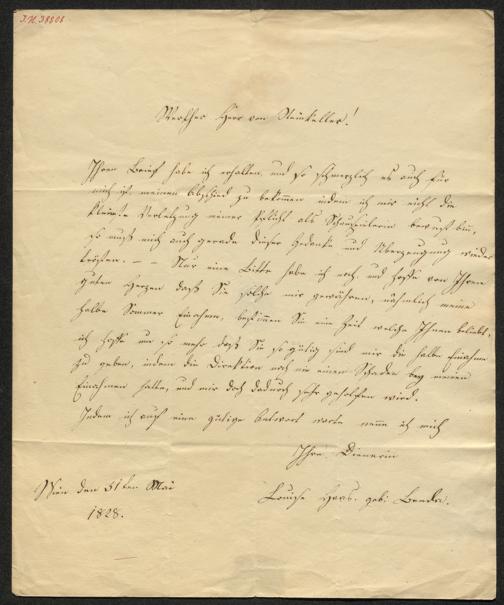 I.N. 38808
Werther Herr von Steinkeller!
Ihren Brief habe ich erhalten, und so schmerzlich es auch für
mich ist, meinen Abschied zu bekommen indem ich mir nicht die
kleinste Verletzung meiner Pflicht als Schauspielerin bewußt bin,
so muß mich auch gerade dieser Gedanke und Überzeugung wieder
trösten. – – Nur eine Bitte habe ich noch, und hoffe von Ihrem
guten Herzen daß Sie solche mir gewähren, nähmlich meine
halbe Sommer Einnahm, bestimmen Sie eine Zeit welche Ihnen beliebt,
ich hoffe um so mehr daß Sie so gütig sind mir die halbe Einnahme
zu geben, indem die Direktion noch nie einen Schaden bey meinen
Einnahmen hatte, und mir doch dadurch sehr geholfen wird.
Indem ich auf eine gütige Antwort warte nenne ich mich
Ihre Dienerin
Wien den 31ten Mai
Louise Haas. geb:
1828.